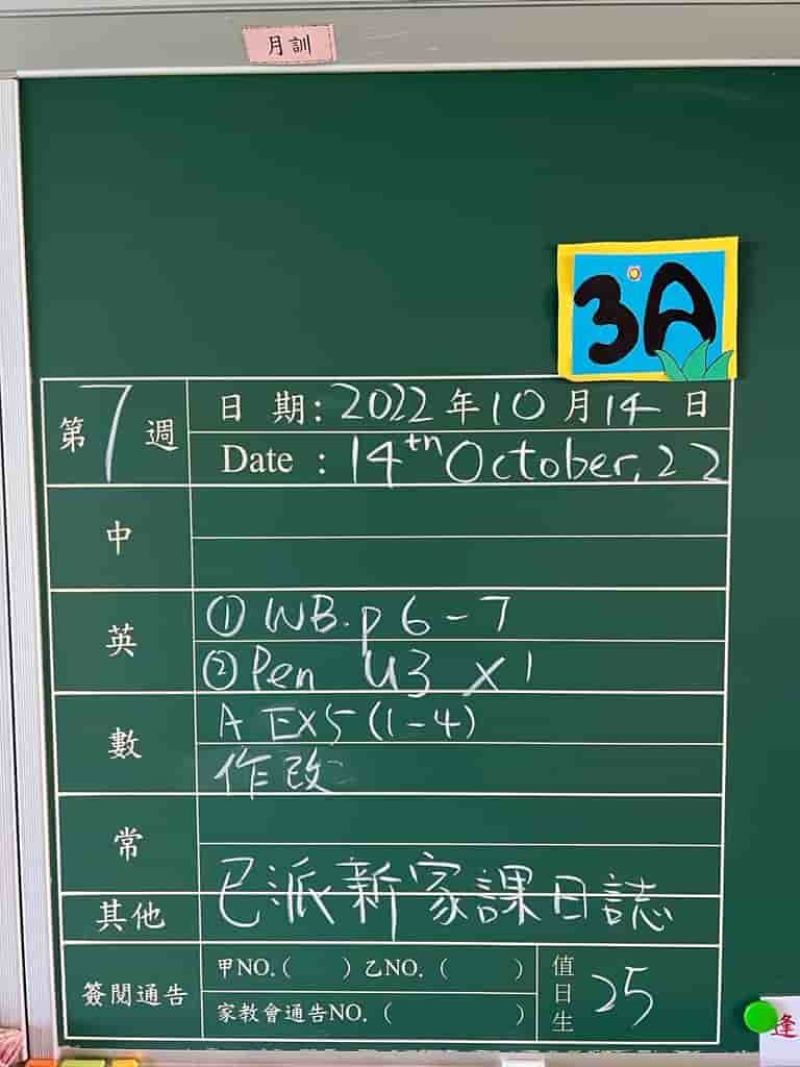 月訓
3A
第7週
日 期：2022年10月14日
Date : 14th October, 22
中
英
① WB. p 6-7
② Pen U3 X 1
數
A EX5 (1-4)
作改
常
其他
已派新家課日誌
簽閱通告
甲NO.( ) 乙NO. ( )
家教會通告NO. ( )
值日生 25
逢